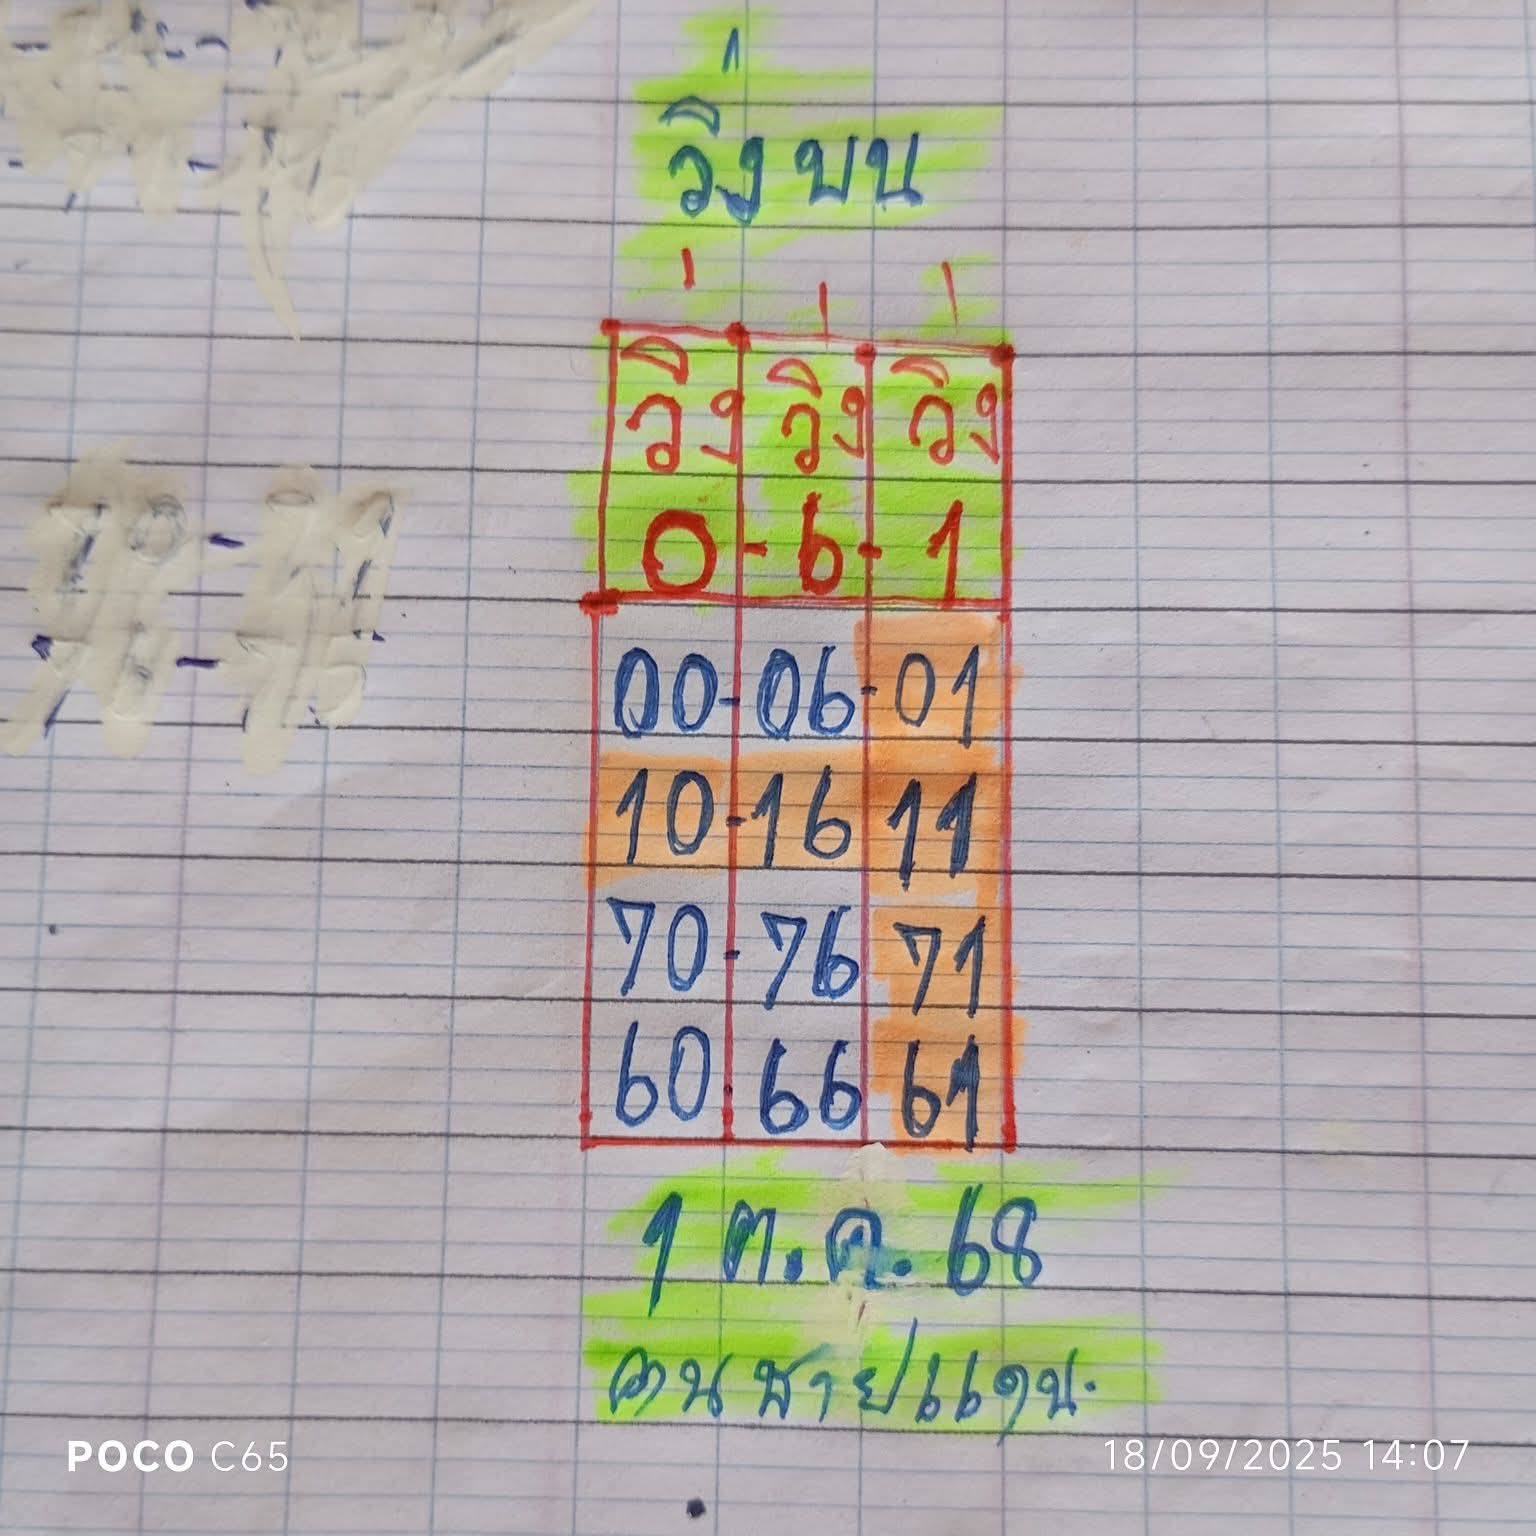 วิ่งบน
วิ่ง วิ่ง วิ่ง
0-6-1
00-06-01
10-16 11
70-76 71
60 66 61
1 ต.ค. 68
คนชายแดน.
POCO C65
18/09/2025 14:07